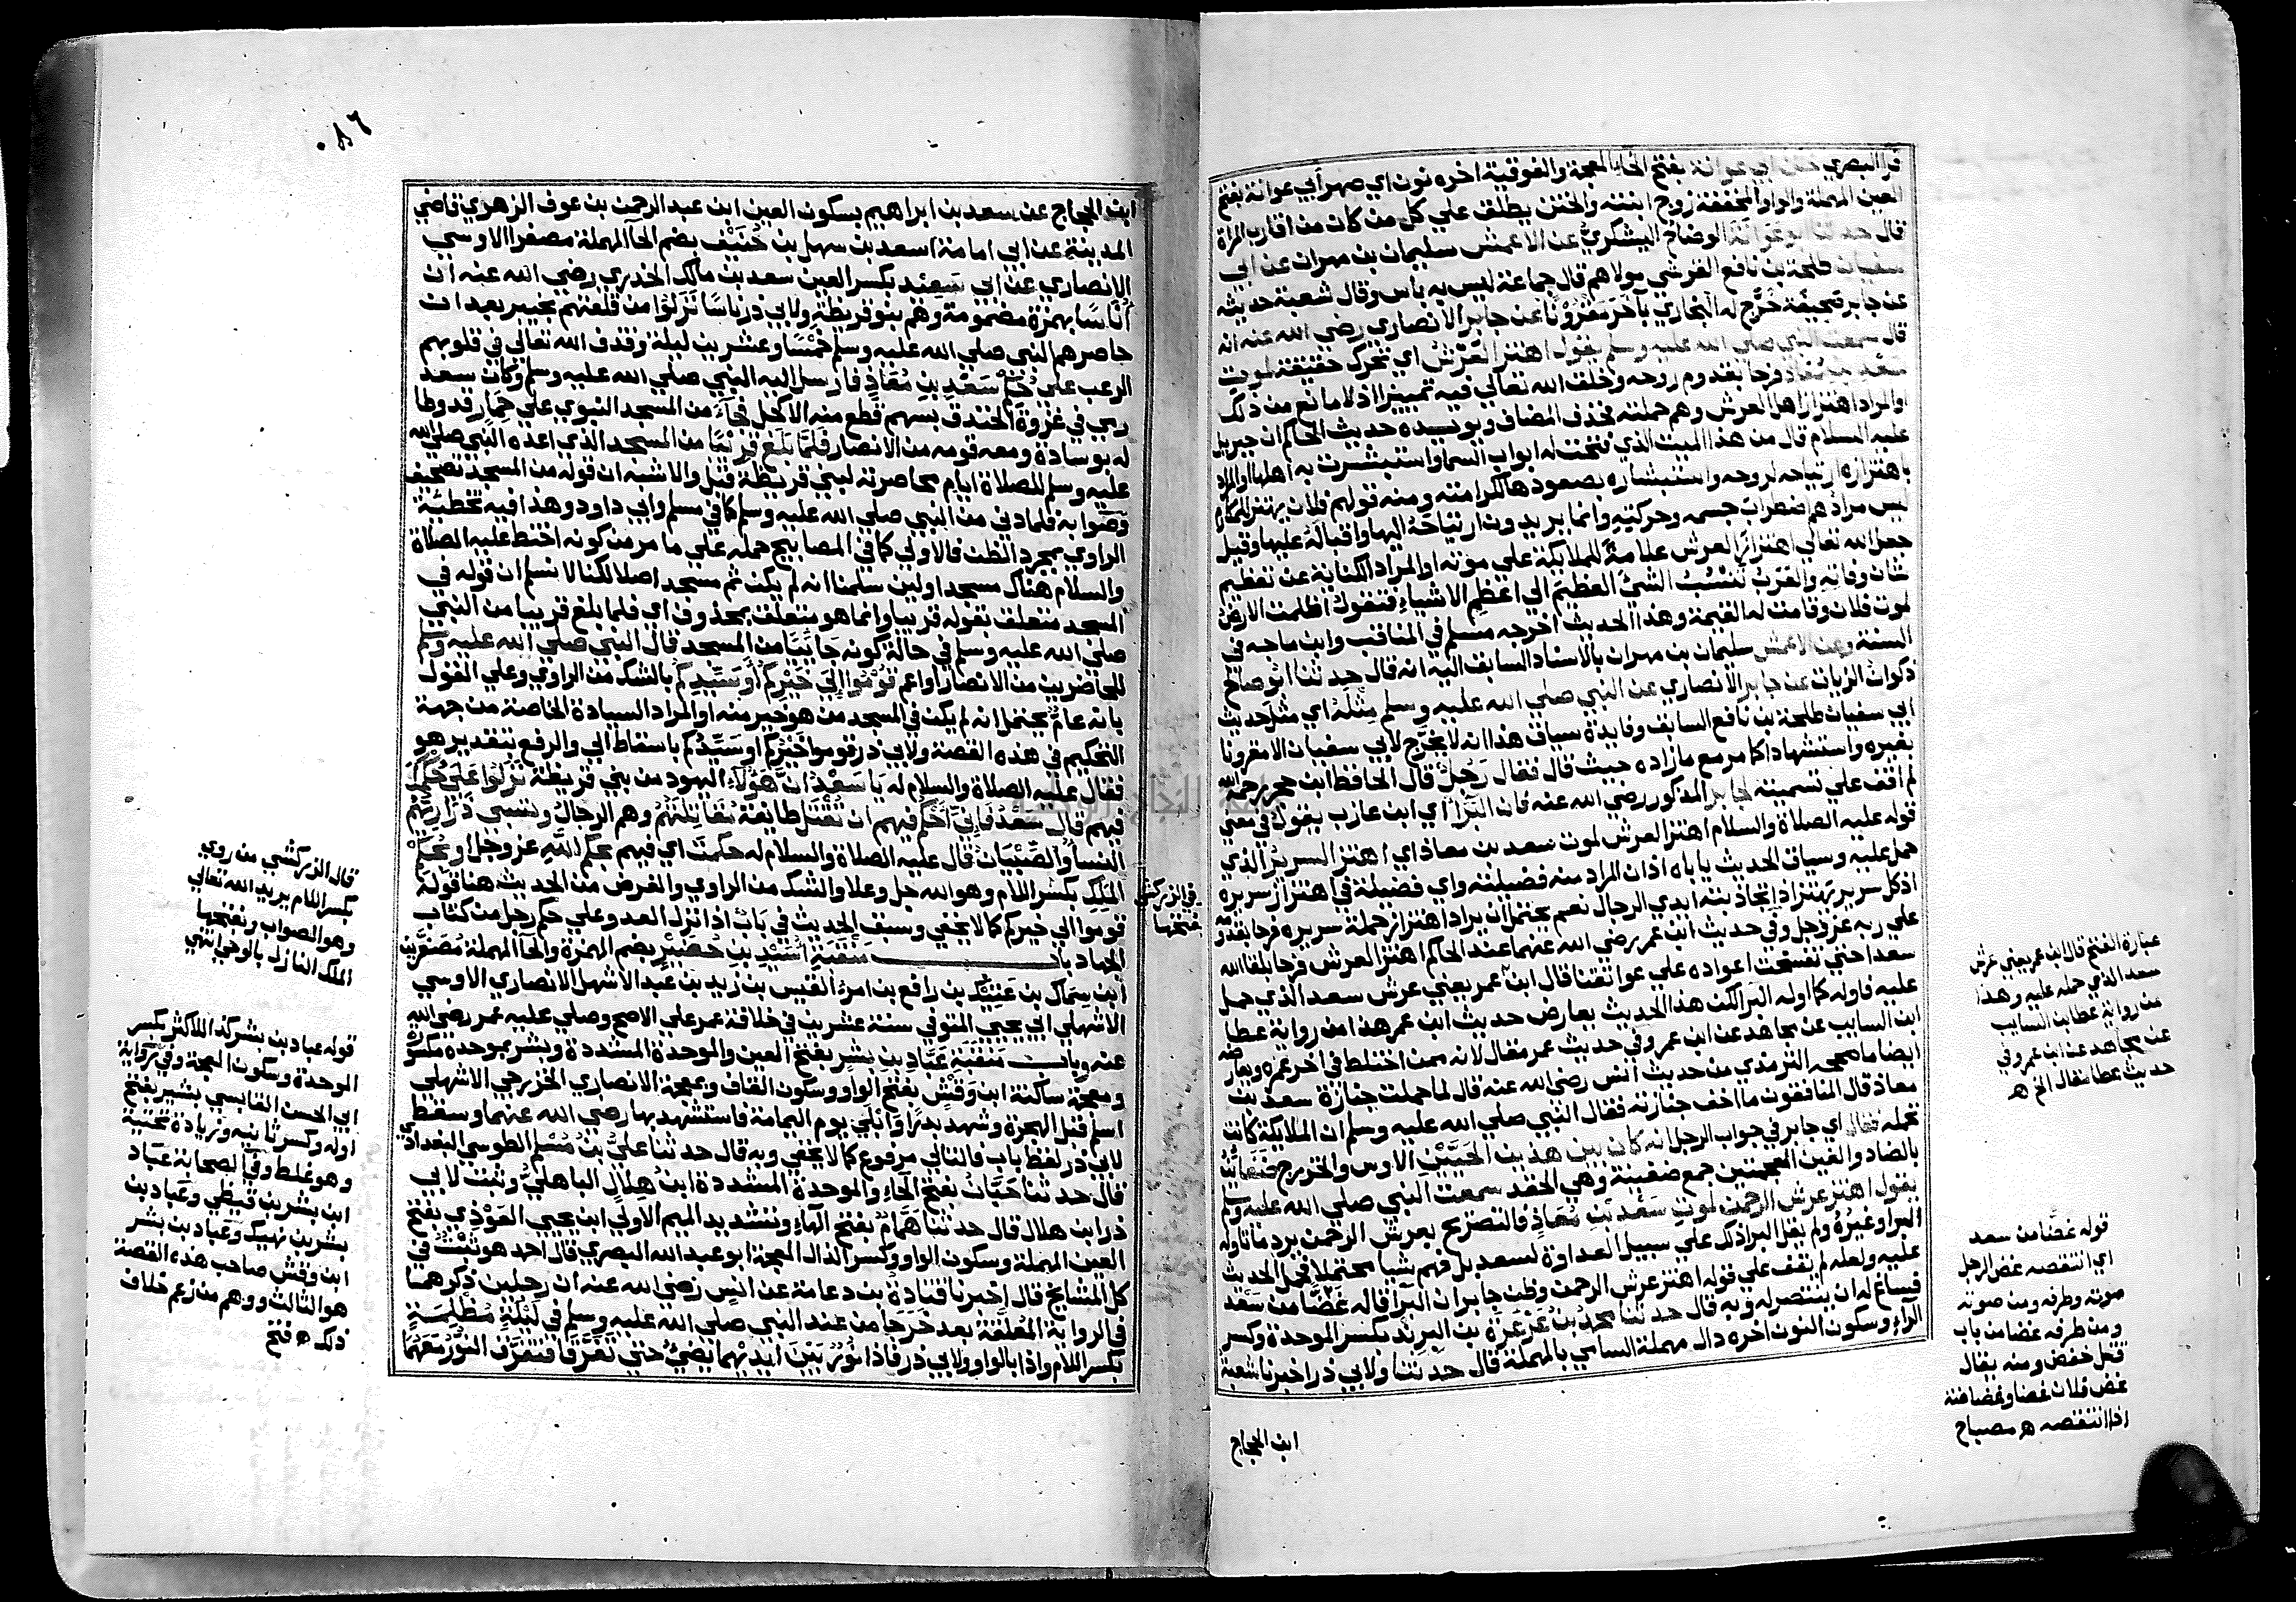 قرا البصري ختن ابي عوانة بفتح الخا المعجمة والفوقية اخره نون اي صهر ابي عوانة بفتح
العين المهملة والواو المخففة زوج ابنته والختن يطلق علي كل من كان من اقارب المراة
قال حدثنا ابو عوانة الوضاح اليشكري عن الاعمش سليمان بن مهران عن ابي
سفيان طلحة بن نافع القرشي مولاهم قال جماعة ليس به باس وقال شعبة حديثه
عن جابر صحيفة خرج له البخاري بآخر مقرونا عن جابر الانصاري رضي الله عنه انه
قال سمعت النبي صلي الله عليه وسلم يقول اهتز العرش اي تحرك حقيقة لموت
سعد بن معاذ فرحا بقدوم روحه وخلق الله تعالي فيه تمييزا اذ لا مانع من ذلك
او المراد اهتزاز اهل العرش وهم حملته فحذف المضاف ويويده حديث الحاكم ان جبريل
عليه السلام قال من هذا الميت الذي فتحت له ابواب السما واستبشرت به اهلها او المراد
باهتزازه ارتياحه لروحه واستبشاره بصعودها لكرامته ومنه قولهم فلان يهتز للمكارم
ليس مرادهم اضطراب جسمه وحركته وانما يريدون ارتياحه اليها واقباله عليها وقيل
جعل الله تعالي اهتزاز العرش علامة للملايكة علي موته او المراد الكناية عن تعظيم
شان وفاته والعرب تنسب الشئ العظيم الي اعظم الاشياء فتقول اظلمت الارض
لموت فلان وقامت له القيمة وهذا الحديث اخرجه مسلم في المناقب وابن ماجه في
السنة وعن الاعمش سليمان بن مهران بالاسناد السابق اليه انه قال حدثنا ابو صالح
ذكوان الزيات عن جابر الانصاري عن النبي صلي الله عليه وسلم مثله اي مثل حديث
ابي سفيان طلحة بن نافع السابق وفايدة سياق هذا انه لا يخرج لابي سفيان الا مقرونا
بغيره واستشهادا كما مر مع ما زاده حيث قال فقال رجل قال الحافظ ابن حجر رحمه الله
لم اقف علي تسميته لجابر المذكور رضي الله عنه فان البرا اي ابن عازب يقول في معني
قوله عليه الصلاة والسلام اهتز العرش لموت سعد بن معاذ اي اهتز السرير الذي
حمل عليه وسياق الحديث ياباه اذ ان المراد منه فضيلته واي فضيلة في اهتزاز سريره
اذ كل سرير يهتز اذا تجاذبته ايدي الرجال نعم يحتمل ان يراد اهتزاز حملة سريره فرحا بقدومه
علي ربه عز وجل وفي حديث ابن عمر رضي الله عنهما عند الحاكم اهتز العرش فرحا بلقا الله
سعدا حتي تفسخت اعواده علي عواتقنا قال ابن عمر يعني عرش سعد الذي حمل
عليه فاوله كما اوله البرا لكن هذا الحديث يعارض حديث ابن عمر هذا من رواية عطا
ابن السايب عن مجاهد عن ابن عمر وفي حديث عمر مقال لانه ممن اختلط في اخر عمره ويعارضه
ايضا ما صححه الترمذي من حديث انس رضي الله عنه قال لما حملت جنازة سعد بن
معاذ قال المنافقون ما اخف جنازته فقال النبي صلي الله عليه وسلم ان الملايكة كانت
تحمله فقال اي جابر في جواب الرجل انه كان بين هذين الحيين الاوس والخزرج ضغائن
بالضاد والغين المعجمتين جمع ضغينة وهي الحقد سمعت النبي صلي الله عليه وسلم
يقول اهتز عرش الرحمن لموت سعد بن معاذ فالتصريح بعرش الرحمن يرد ما تاوله
البرا وغيره ولم يقل البرا ذلك علي سبيل العداوة لسعد بل فهم شيا محتملا فحمل الحديث
عليه ولعله لم يقف علي قوله اهتز عرش الرحمن وظن جابر ان البرا قاله غضا من سعد
فساغ له ان ينتصر له وبه قال حدثنا محمد بن عرعرة بن البرند بكسر الموحدة وكسر
الراء وسكون النون اخره دال مهملة السامي بالمهملة قال حدثنا ولابي ذر اخبرنا شعبة
ابن الحجاج
عبارة الفتح قال ابن عمر يعني عرش
سعد الذي حمله عليه وهذا
من رواية عطا بن السايب
عن مجاهد عن ابن عمر وفي
حديث عطا مقال الخ ه
قوله غضا من سعد
اي انتقصه غض الرجل
صوته وطرفه ومن صوته
ومن طرفه غضا من باب
قتل خفض ومنه يقال
غض فلان غضا وغضاضة
اذا انتقصه ه مصباح
٠٨٦
ابن الحجاج عن سعد بن ابراهيم بسكون العين ابن عبد الرحمن بن عوف الزهري قاضي
المدينة عن ابي امامة اسعد بن سهل بن حنيف بضم الحا المهملة مصغرا الاوسي
الانصاري عن ابي سعيد بكسر العين سعد بن مالك الخدري رضي الله عنه ان
أناسا بهمزة مضمومة وهم بنو قريظة ولابي ذر ناسا نزلوا من قلعتهم بخيبر بعد ان
حاصرهم النبي صلي الله عليه وسلم خمسا وعشرين ليلة وقذف الله تعالي في قلوبهم
الرعب علي حكم سعد بن معاذ فارسل اليه النبي صلي الله عليه وسلم وكان سعد
رمي في غزوة الخندق بسهم قطع منه الاكحل فجاء من المسجد النبوي علي حمار قد وطا
له بوسادة ومعه قومه من الانصار فلما بلغ قريبا من المسجد الذي اعده النبي صلي الله
عليه وسلم للصلاة ايام محاصرته لبني قريظة قيل والاشبه ان قوله من المسجد تصحيف
وصوابه فلما دني من النبي صلي الله عليه وسلم كما في مسلم وابي داود وهذا فيه تخطئة
الراوي بمجرد الظن فالاولي كما في المصابيح حمله علي ما مر من كونه اختط عليه الصلاة
والسلام هناك مسجدا ولين سلمنا انه لم يكن ثم مسجد اصلا لكنا لا نسلم ان قوله في
المسجد متعلق بقوله قريبا وانما هو متعلق بمحذوف اي فلما بلغ قريبا من النبي
صلي الله عليه وسلم في حالة كونه جائيا من المسجد قال النبي صلي الله عليه وسلم
للحاضرين من الانصار او اعم قوموا إلي خيركم أو سيدكم بالشك من الراوي وعلي القول
بانه عام يحتمل انه لم يكن في المسجد من هو خير منه او المراد السيادة الخاصة من جهة
التحكيم في هذه القصة ولابي ذر قوموا خيركم او سيدكم باسقاط الي والرفع بتقدير هو
فقال عليه الصلاة والسلام له يا سعد ان هؤلاء اليهود من بني قريظة نزلوا علي حكمك
فيهم قال سعد فإني أحكم فيهم ان تقتل طايفة مقاتلتهم وهم الرجال وتسبي ذراريهم
النسا والصبيان قال عليه الصلاة والسلام له حكمت اي فيهم بحكم الله عز وجل او بحكم
الملك بكسر اللام وهو الله جل وعلا والشك من الراوي والغرض من الحديث هنا قوله
قوموا الي خيركم كما لا يخفي وسبق الحديث في باب اذا نزل العدو علي حكم رجل من كتاب
الجهاد باب منقبة أسيد بن حضير بضم الهمزة والحا المهملة مصغرين
ابن سماك بن عتيك بن رافع بن امرئ القيس بن زيد بن عبد الاشهل الانصاري الاوسي
الاشهلي ابي يحيي المتوفي سنة عشرين في خلافة عمر علي الاصح وصلي عليه عمر رضي الله
عنه وباب منقبة عباد بن بشر بفتح العين والموحدة المشددة وبشر بموحدة مكسورة
ومعجمة ساكنة ابن وقش بفتح الواو وسكون القاف وبمعجمة الانصاري الخزرجي الاشهلي
اسلم قبل الهجرة وشهد بدرا وابلي يوم اليمامة فاستشهد بها رضي الله عنهما وسقط
لابي ذر لفظ باب فالتالي مرفوع كما لا يخفي وبه قال حدثنا علي بن مسلم الطوسي البغدادي
قال حدثنا حبان بفتح الحاء والموحدة المشددة ابن هلال الباهلي وثبت لابي
ذر ابن هلال قال حدثنا همام بفتح الهاء وتشديد الميم الاولي ابن يحيي العوذي بفتح
العين المهملة وسكون الواو وكسر الذال المعجمة ابو عبد الله البصري قال احمد هو ثبت في
كل المشايخ قال اخبرنا قتادة بن دعامة عن انس رضي الله عنه ان رجلين ذكرهما
في الرواية المعلقة بعد خرجا من عند النبي صلي الله عليه وسلم في ليلة مظلمة
بكسر اللام واذا بالواو ولابي ذر فاذا نور بين ايديهما يضئ حتي تفرقا فتفرق النور معهما
في الزركشي
بفتحها
قال الزركشي من روي
بكسر اللام يريد الله تعالي
وهو الصواب وبفتحها
الملك النازل بالوحي انتهي
قوله عباد بن بشر كذا للاكثر بكسر
الموحدة وسكون المعجمة وفي رواية
ابي الحسن القابسي بشير بفتح
اوله وكسر ثانيه وزيادة تحتية
وهو غلط وفي الصحابة عباد
ابن بشر بن قيظي وعباد بن
بشر بن نهيك وعباد بن بشر
ابن وقش صاحب هذه القصة
هو الثالث ووهم من زعم خلاف
ذلك ه فتح